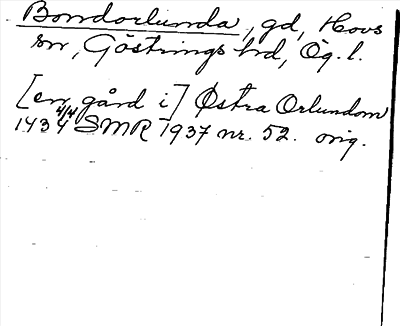 Bondorlunda, gd, Hovs
sn, Göstrings hd, Ög. l.
[en gård i] Østra Orlundom
1434 4/4 SMR 1937 nr. 52. orig.